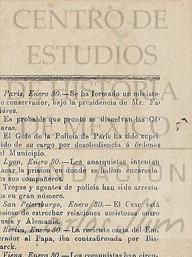 CENTRO DE
ESTUDIOS
Paris, Enero 30.—Se ha formado un ministe-
rio conservador, bajo la presidencia de Mr. Fa-
lières.
Es probable que pronto se disuelvan las Cá-
maras.
El Gefe de la Policía de Paris ha sido supri-
mido de su cargo por desobediencia á órdenes
del Municipio.
Lyon, Enero 30.—Los anarquistas intentan
atacar la prision donde se hallan encarcela-
dos sus compañeros.
Tropas y agentes de policía han sido arresta-
dos en gran número.
San Petersburgo, Enero 30.—El Czar está
ansioso de estrechar relaciones amistosas entre
Rusia y Alemania.
Berlin, Enero 30.—La reciente carta del Em-
perador al Papa, iba contrafirmada por Bis-
marck.
Viena, Enero 30.—Los comunistas han circu-